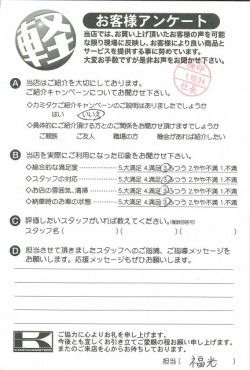 軽
お客様アンケート
当店では、お買い上げ頂いたお客様の声を可能
な限り現場に反映し、お客様により良い商品と
サービスを提供する事に努めています。
大変お手数ですが是非お声をお聞かせ下さい。
社長
A 当店はご紹介を大切にしております。
ご紹介キャンペーンについてお聞かせ下さい。
◇カミタケご紹介キャンペーンのご説明はありましたでしょうか
はい いいえ
◇具体的にご紹介頂ける方とのご関係をお聞かせ頂けますでしょうか
ご親族 ご友人 職場の方 機会があれば紹介したい
B 当店を実際にご利用になった印象をお聞かせ下さい。
◇総合的な満足度 5.大満足 4.満足 3.ふつう 2.やや不満 1.不満
◇スタッフの対応 5.大満足 4.満足 3.ふつう 2.やや不満 1.不満
◇お店の雰囲気、清掃 5.大満足 4.満足 3.ふつう 2.やや不満 1.不満
◇納車時のお車の状態 5.大満足 4.満足 3.ふつう 2.やや不満 1.不満
C 評価したいスタッフがいれば教えてください。(複数回答可)
スタッフ名( )( )( )
D 担当させて頂きましたスタッフへのご指摘、ご指導メッセージを
お願いします。応援メッセージもぜひお願いします。
K
ご協力に心よりお礼を申し上げます。
今後とも宜しくお引き立てご愛顧の程お願い申し上げます。
またのご来店を心からお待ちしております。
担当( 福光 )